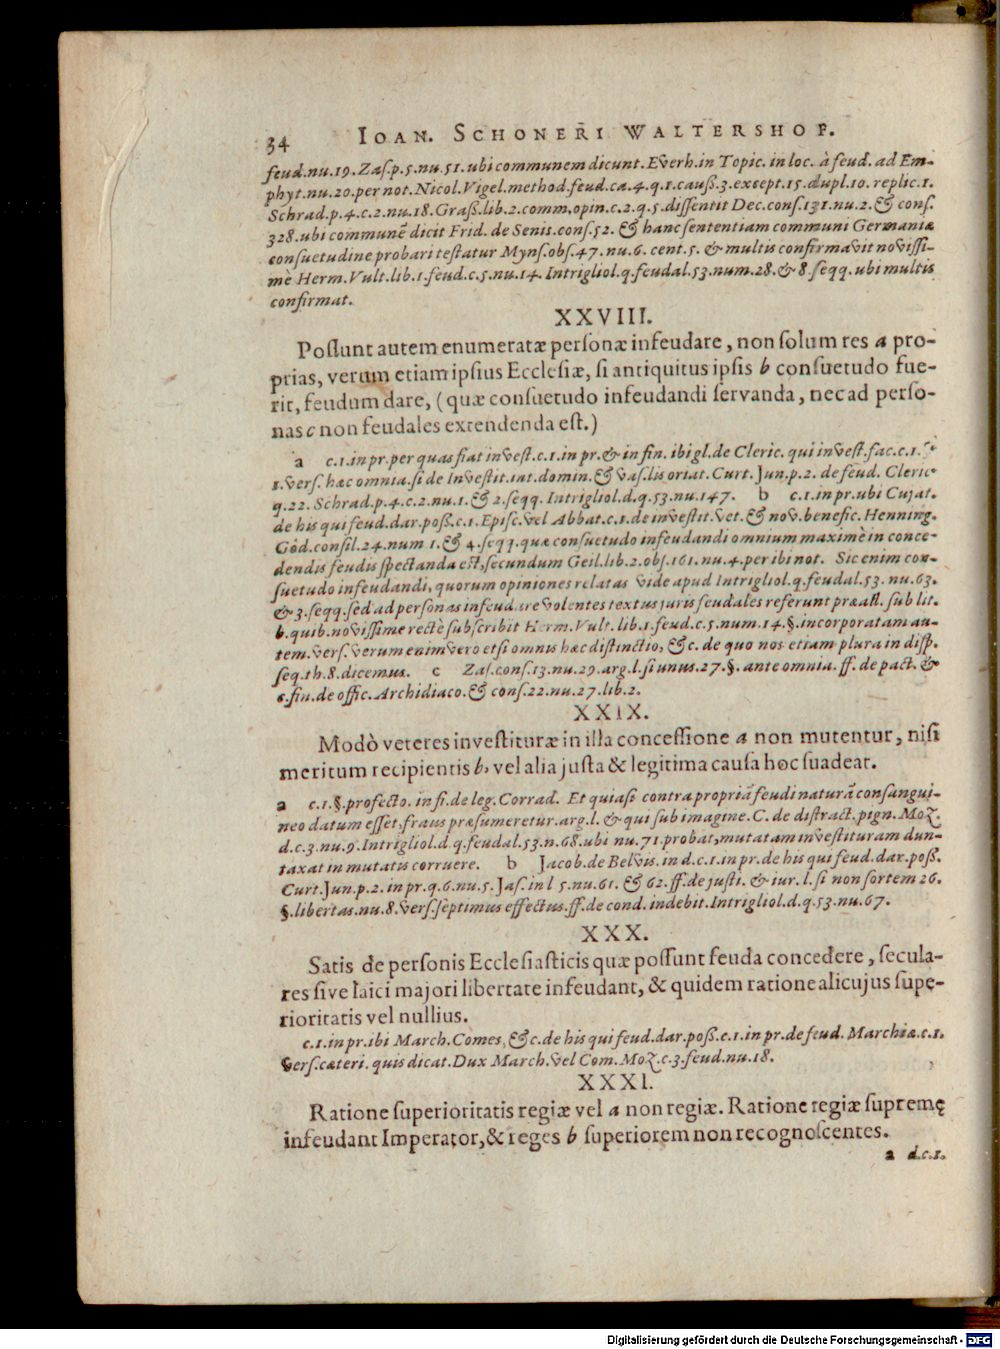 34 IOAN. SCHONERI WALTERSHOF.
feud.nu.19. Zaſ.p.5.nu.51.ubi communem dicunt. Everh.in Topic. in loc. à feud. ad Em-
phyt.nu.20.per not. Nicol. Vigel.method.feud.ca.4.q.1.cauß.3.except.15.dupl.10. replic.1.
Schrad.p.4.c.2.nu.18.Graß.lib.2.comm.opin.c.2.q.5.diſſentit Dec.conſ.131.nu.2.& conſ.
328.ubi communē dicit Frid. de Senis.conſ.52. & hanc ſententiam communi Germaniæ
conſuetudine probari teſtatur Mynſ.obſ.47.nu.6. cent.5. & multis confirmavit noviſſi-
mè Herm.Vult.lib.1.feud.c.5.nu.14. Intrigliol.q.feudal.53.num.28.& 8.ſeqq.ubi multis
confirmat.
XXVIII.
Poſſunt autem enumeratæ perſonæ infeudare, non ſolum res a pro-
prias, verum etiam ipſius Eccleſiæ, ſi antiquitus ipſis b conſuetudo fue-
rit, feudum dare, (quæ conſuetudo infeudandi ſervanda, nec ad perſo-
nas c non feudales extendenda eſt.)
a c.1.in pr.per quas fiat inveſt.c.1.in pr.& in fin. ibi gl.de Cleric. qui inveſt.fac.c.1.
1.verſ. hæc omnia.ſi de Inveſtit.int.domin.& vaſ.lis oriat. Curt. Jun.p.2. de feud. Cleric.
q.22. Schrad.p.4.c.2.nu.1.& 2.ſeqq. Intrigliol.d.q.53.nu.147. b c.1.in pr.ubi Cujat.
de his qui feud.dar.poß.c.1.Epiſc.vel Abbat.c.1.de inveſtit.vet.& nov.benefic. Henning.
Göd.conſil.24.num 1.& 4.ſeqq.quæ conſuetudo infeudandi omnium maximè in conce-
dendis feudis ſpectanda eſt,ſecundum Geil.lib.2.obſ.161.nu.4.per ibi not. Sic enim con-
ſuetudo infeudandi, quorum opiniones relatas vide apud Intrigliol.q.feudal.53. nu.63.
& 3.ſeqq.ſed ad perſonas infeudare volentes textus juris feudales referunt præall. ſub lit.
b.quib.noviſſime rectè ſubſcribit Herm. Vult. lib.1.feud.c.5.num.14.§.incorporatam au-
tem.verſ. verum enimvero etſi omnis hæc diſtinctio, &c. de quo nos etiam plura in diſp.
ſeq.th.8.dicemus. c Zaſ.conſ.13.nu.29.arg.l.ſi unus.27.§. ante omnia. ff. de pact. &
c.fin.de offic. Archidiaco.& conſ.22.nu.27.lib.2.
XXIX.
Modò veteres inveſtituræ in illa conceſſione a non mutentur, niſi
meritum recipientis b, vel alia juſta & legitima cauſa hoc ſuadeat.
a c.1.§.profecto. in fi.de leg. Corrad. Et quiaſi contra propriā feudi naturā conſangui-
neo datum eſſet,fraus præſumeretur.arg.l. & qui ſub imagine.C. de diſtract.pign.Moz.
d.c.3.nu.9.Intrigliol.d.q.feudal.53.n.68.ubi nu.71.probat,mutatam inveſtituram dun-
taxat in mutatis corruere. b Jacob.de Belvis.in d.c.1.in pr.de his qui feud.dar.poß.
Curt.Jun.p.2. in pr.q.6.nu.5.Jaſ.in l 5.nu.61. & 62.ff.de juſti. & iur. l.ſi non ſortem 26.
§.libertas.nu.8.verſ.ſeptimus effectus.ff.de cond. indebit.Intrigliol.d.q.53.nu.67.
XXX.
Satis de perſonis Eccleſiaſticis quæ poſſunt feuda concedere, ſecula-
res ſive laici majori libertate infeudant, & quidem ratione alicujus ſupe-
rioritatis vel nullius.
c.1.in pr.ibi March.Comes, &c.de his qui feud.dar.poß.c.1.in pr.de feud. Marchiæ.c.1.
verſ.cæteri. quis dicat.Dux March.vel Com.Moz.c.3.feud.nu.18.
XXXI.
Ratione ſuperioritatis regiæ vel a non regiæ. Ratione regiæ ſupremę
infeudant Imperator,& reges b ſuperiorem non recognoſcentes.
a d.c.1.
Digitalisierung gefördert durch die Deutsche Forschungsgemeinschaft - DFG